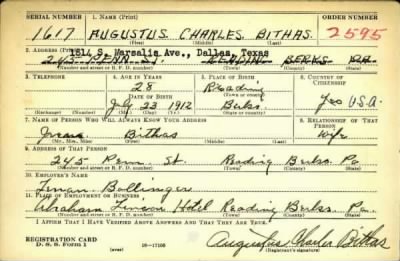 SERIAL NUMBER 1. NAME (Print) ORDER NUMBER
1617 AUGUSTUS CHARLES BITHAS 2595
(First) (Middle) (Last)
1814 S. Marsalis Ave., Dallas, Texas
2. ADDRESS (Print)
245 PENN ST. READING BERKS PA
(Number and street or R. F. D. number) (Town) (County) (State)
3. TELEPHONE 4. AGE IN YEARS 5. PLACE OF BIRTH 6. COUNTRY OF CITIZENSHIP
28 Reading
DATE OF BIRTH (Town or county)
July 23 1912 Berks. U.S.A.
(Exchange) (Number) (Mo.) (Day) (Yr.) (State or country)
7. NAME OF PERSON WHO WILL ALWAYS KNOW YOUR ADDRESS 8. RELATIONSHIP OF THAT PERSON
Bithas Wife
(Mr., Mrs., Miss) (First) (Middle) (Last)
9. ADDRESS OF THAT PERSON
245 Penn. St. Reading Berks. Pa
(Number and street or R. F. D. number) (Town) (County) (State)
10. EMPLOYER'S NAME
Bollinger
11. PLACE OF EMPLOYMENT OR BUSINESS
Abraham Lincoln Hotel Reading Berks. Pa.
(Number and street or R. F. D. number) (Town) (County) (State)
I AFFIRM THAT I HAVE VERIFIED ABOVE ANSWERS AND THAT THEY ARE TRUE.
REGISTRATION CARD
D. S. S. Form 1 (over) 16—17105 Augustus Charles Bithas
(Registrant's signature)